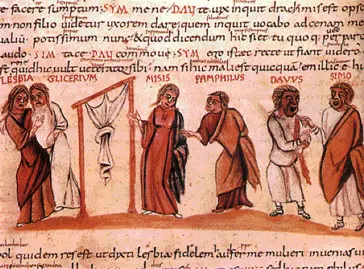 te facere sumptum; SYM me ne; DAV te uix inquit drachmis est opso
non filio uidetur uxorem dare; quem inquit uocabo ad cenam m
potissimum nunc; & quod dicendum hic siet tu quoq; per par
laudo · SIM tace DAV commoui SYM ego istaec recte ut fiant uidero
quid hic uult ueterator sibi nam si hic mali est quicquam
LESBIA GLICERIUM MISIS PAMPHILUS DAVUS SIMO
pol quidem res est ut dixti lesbia fidelem haut ferme mulieri inuenias